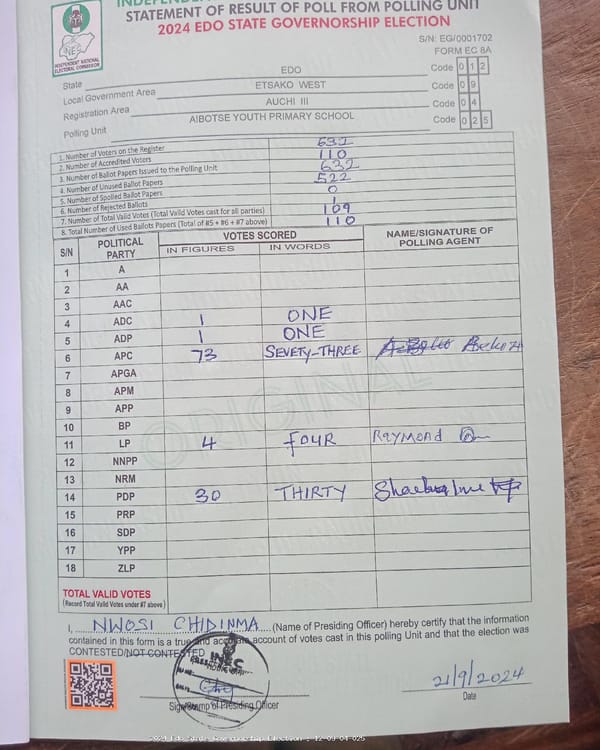 INDEPENDENT NATIONAL ELECTORAL COMMISSION
STATEMENT OF RESULT OF POLL FROM POLLING UNIT
2024 EDO STATE GOVERNORSHIP ELECTION
S/N: EG/0001702
FORM EC 8A
State EDO Code 0 1 2
Local Government Area ETSAKO WEST Code 0 9
Registration Area AUCHI III Code 0 4
Polling Unit AIBOTSE YOUTH PRIMARY SCHOOL Code 0 2 5
1. Number of Voters on the Register 632
2. Number of Accredited Voters 110
3. Number of Ballot Papers Issued to the Polling Unit 632
4. Number of Unused Ballot Papers 522
5. Number of Spoiled Ballot Papers 0
6. Number of Rejected Ballots 1
7. Number of Total Valid Votes (Total Valid Votes cast for all parties) 109
8. Total Number of Used Ballots Papers (Total of #5 + #6 + #7 above) 110
S/N POLITICAL PARTY VOTES SCORED NAME/SIGNATURE OF POLLING AGENT
IN FIGURES IN WORDS
1 A
2 AA
3 AAC
4 ADC 1 ONE
5 ADP 1 ONE
6 APC 73 SEVETY-THREE
7 APGA
8 APM
9 APP
10 BP
11 LP 4 FOUR Raymond
12 NNPP
13 NRM
14 PDP 30 THIRTY
15 PRP
16 SDP
17 YPP
18 ZLP
ORIGINAL
TOTAL VALID VOTES
(Record Total Valid Votes under #7 above)
I, NWOSI CHIDINMA (Name of Presiding Officer) hereby certify that the information
contained in this form is a true and accurate account of votes cast in this polling Unit and that the election was
CONTESTED/NOT CONTESTED
INEC
21/9/2024
Sign/Stamp of Presiding Officer
Date